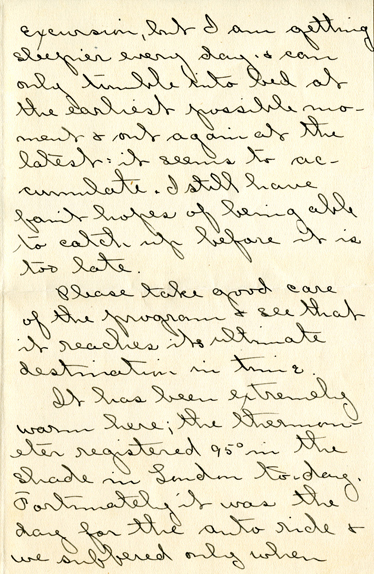 excursion, but I am getting
sleepier every day & can
only tumble into bed at
the earliest possible mo-
ment & out again at the
latest: it seems to ac-
cumulate. I still have
faint hopes of being able
to catch up before it is
too late.
Please take good care
of the program & see that
it reaches its ultimate
destination in time.
It has been extremely
warm here; the thermom-
eter registered 95° in the
shade in London to-day.
Fortunately it was the
day for the auto ride &
we suffered only when